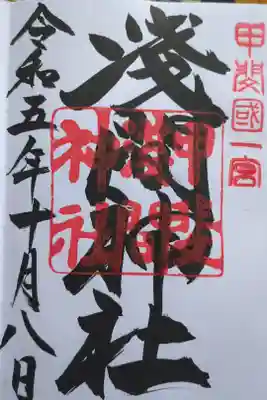 甲斐國一宮
淺間神社
令和五年十月八日